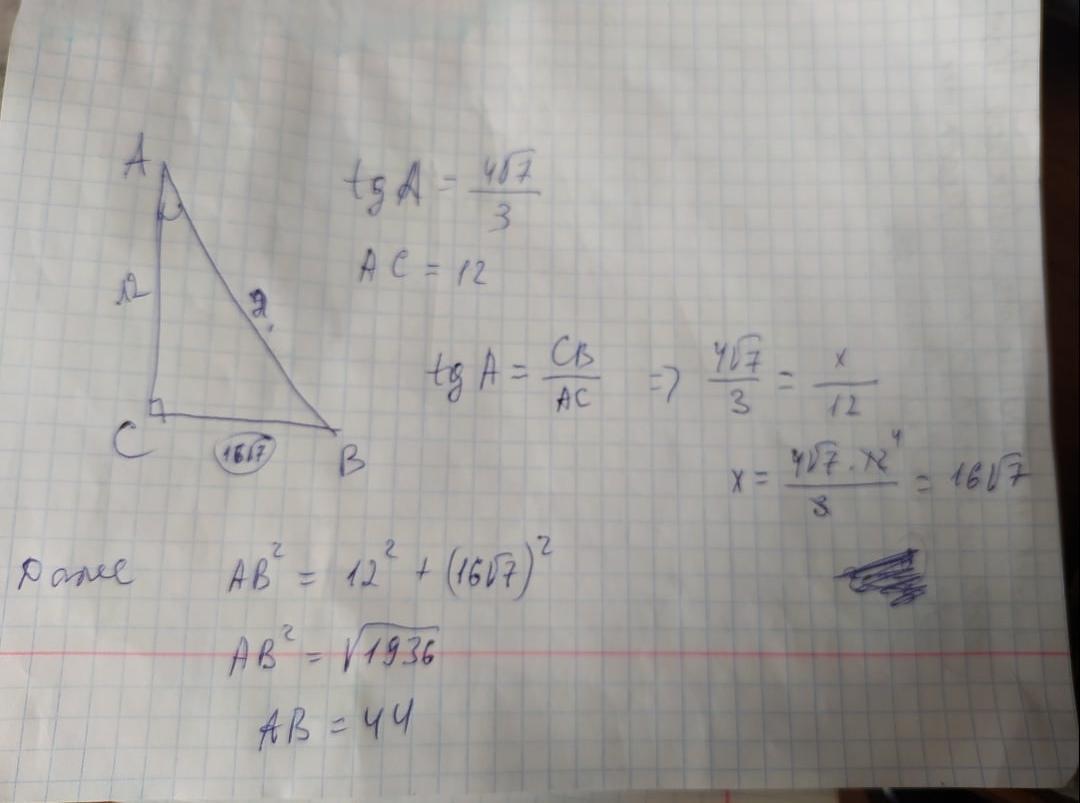 A
tg A = 4√7/3
12
?
AC = 12
tg A = CB/AC => 4√7/3 = x/12
C
16√7
B
x = 4√7 · 12⁴/3 = 16√7
Далее AB² = 12² + (16√7)²
AB² = √1936
AB = 44